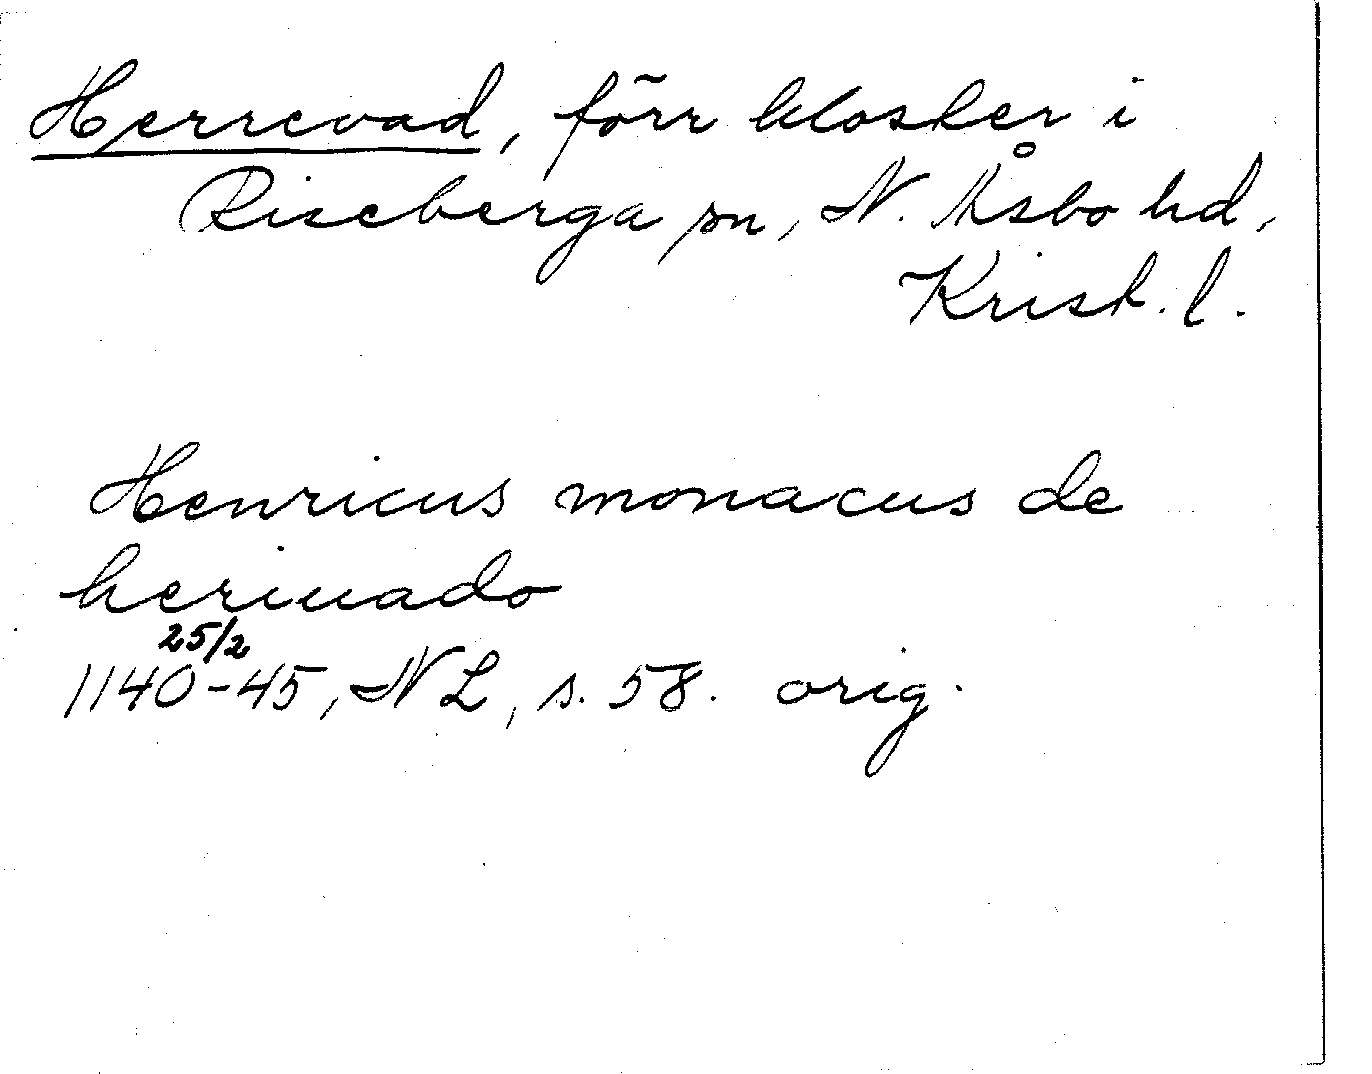 Herrevad, förr kloster i
Riseberga sn, N. Åsbo hd,
Krist. l.
Henricus monacus de
heriuado
25/2
1140-45, NL, s. 58. orig.